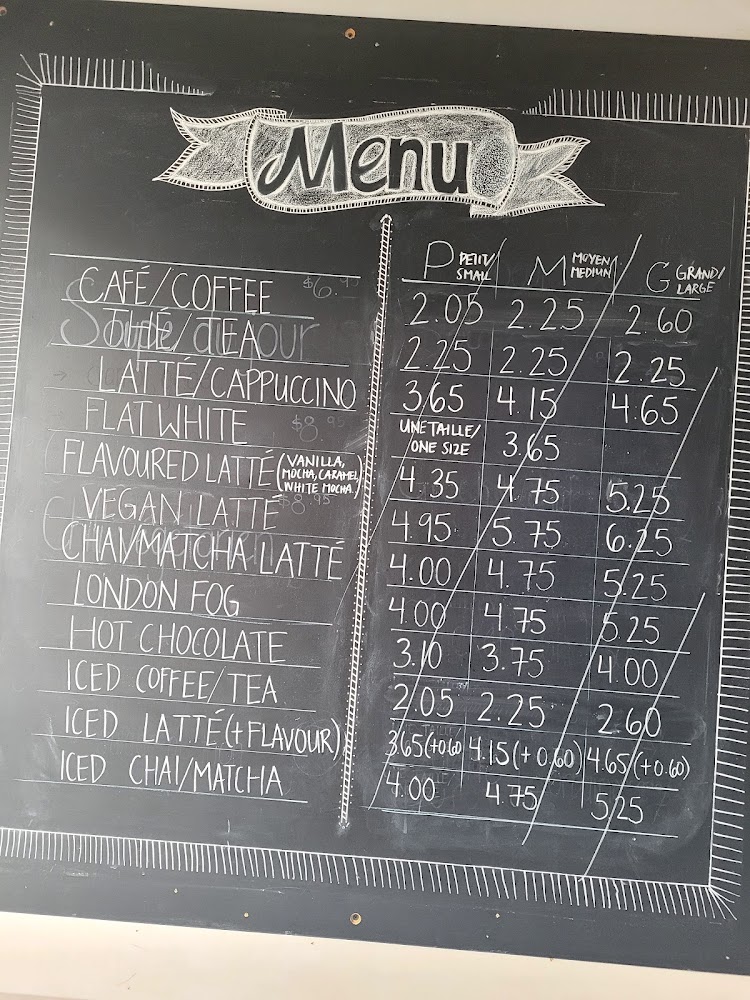 Menu
P PETIT/ SMALL M MOYEN/ MEDIUM G GRAND/ LARGE
CAFÉ/COFFEE 2.05 2.25 2.60
THÉ/TEA 2.25 2.25 2.25
LATTÉ/CAPPUCCINO 3.65 4.15 4.65
FLAT WHITE UNE TAILLE/ ONE SIZE 3.65
FLAVOURED LATTÉ (VANILLA, MOCHA, CARAMEL, WHITE MOCHA) 4.35 4.75 5.25
VEGAN LATTÉ 4.95 5.75 6.25
CHAI/MATCHA LATTÉ 4.00 4.75 5.25
LONDON FOG 4.00 4.75 5.25
HOT CHOCOLATE 3.10 3.75 4.00
ICED COFFEE/TEA 2.05 2.25 2.60
ICED LATTÉ (+FLAVOUR) 3.65 (+0.60) 4.15 (+0.60) 4.65 (+0.60)
ICED CHAI/MATCHA 4.00 4.75 5.25
Soupe du jour
$8.95
$8.95